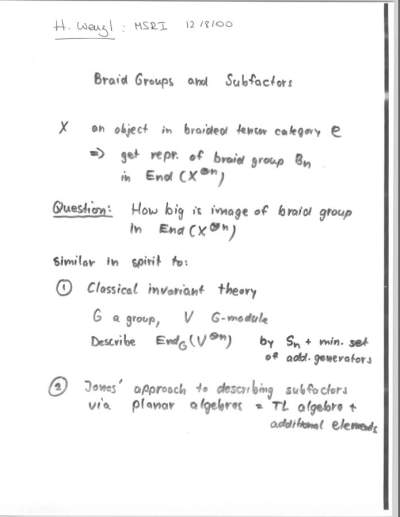 H. Wenzl : MSRI 12/8/00
Braid Groups and Subfactors
X an object in braided tensor category C
=> get repr. of braid group Bn
in End (X⊗n)
Question: How big is image of braid group
in End (X⊗n)
similar in spirit to:
① Classical invariant theory
G a group, V G-module
Describe EndG(V⊗n) by Sn + min. set
of addl. generators
② Jones' approach to describing subfactors
via planar algebras = TL algebra +
additional elements